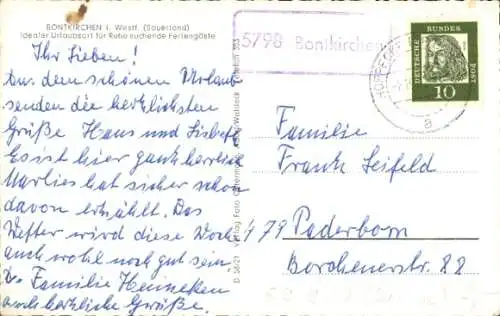 BONTKIRCHEN i. Westf. (Sauerland)
Idealer Urlaubsort für Ruhe suchende Feriengäste
Ihr Lieben!
Aus dem schönen Urlaub
senden die herzlichsten
Grüße Hans und Lisbeth
Es ist hier ganz herrlich
Marlies hat sicher schon
davon erzählt. Das
Wetter wird diese Woche
auch wohl noch gut sein
Familie Henneken
auch herzliche Grüße.
D 56/21 Verlag Foto
5798 Bontkirchen
DEUTSCHE BUNDESPOST
10
a
Familie
Frank Leifeld
479 Paderborn
Borchenerstr. 88